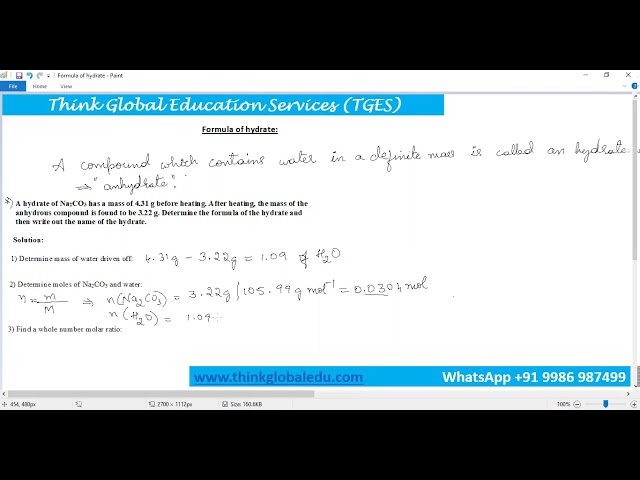 Formula of hydrate - Paint
File
Home
View
Think Global Education Services (TGES)
Formula of hydrate:
A compound which contains water in a definite mass is called an hydrate.
⇒ "anhydrate".
*) A hydrate of Na₂CO₃ has a mass of 4.31 g before heating. After heating, the mass of the
anhydrous compound is found to be 3.22 g. Determine the formula of the hydrate and
then write out the name of the hydrate.
Solution:
1) Determine mass of water driven off: 4.31g - 3.22g = 1.09 g H₂O
2) Determine moles of Na₂CO₃ and water:
n = m/M ⇒ n(Na₂CO₃) = 3.22g / 105.99 g mol⁻¹ = 0.0304 mol
n(H₂O) = 1.09
3) Find a whole number molar ratio:
www.thinkglobaledu.com
WhatsApp +91 9986 987499
454, 480px
2700 × 1112px
Size: 160.6KB
100%